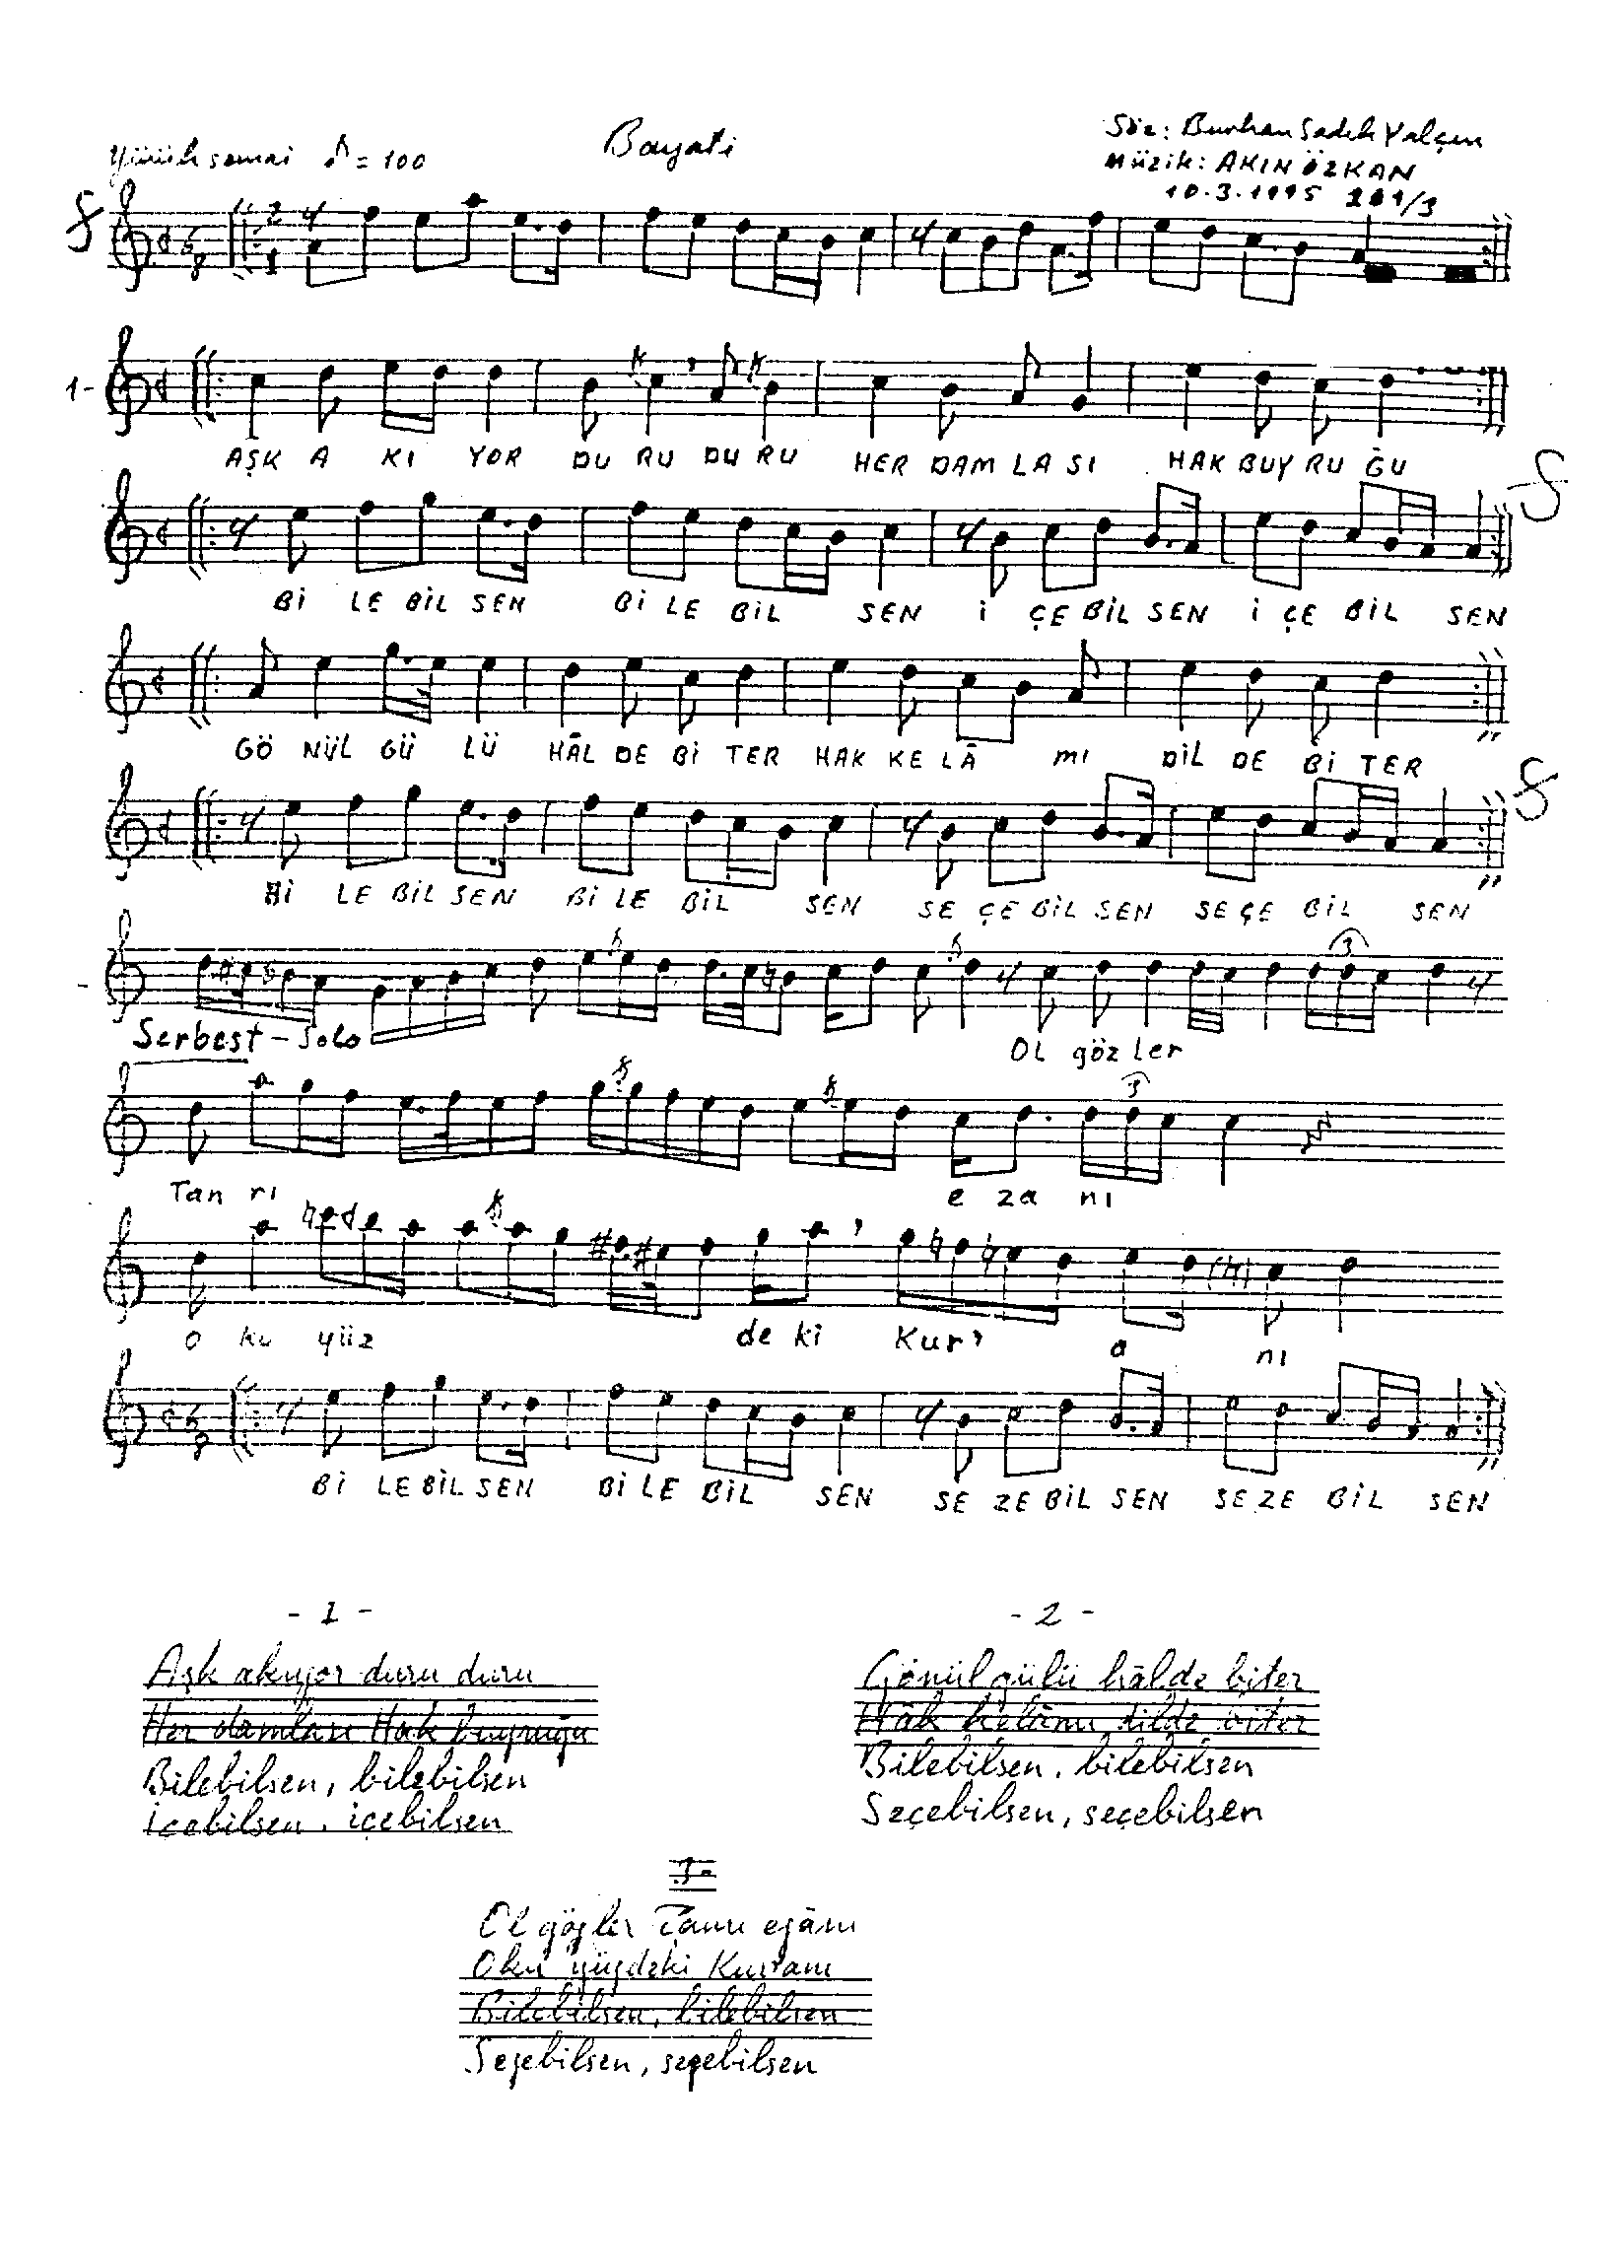 Söz: Burhan Sadık Yalçın
Yürük semai ♪ = 100 Bayati
Müzik: AKIN ÖZKAN
10.3.1995 201/3
1-
AŞK A KI YOR DU RU DU RU HER DAM LA SI HAK BUY RU ĞU
Bİ LE BİL SEN Bİ LE BİL SEN İ ÇE BİL SEN İ ÇE BİL SEN
GÖ NÜL GÜ LÜ HÂL DE Bİ TER HAK KE LÂ MI DİL DE Bİ TER
Bİ LE BİL SEN Bİ LE BİL SEN SE ÇE BİL SEN SE ÇE BİL SEN
Serbest - Solo Ol göz ler
Tan rı e za nı
o ku yüz de ki Kur' a nı
Bİ LE BİL SEN Bİ LE BİL SEN SE ZE BİL SEN SE ZE BİL SEN
- 1 -
Aşk akıyor duru duru
Her damlası Hak buyruğu
Bilebilsen, bilebilsen
İçebilsen, içebilsen
- 2 -
Gönül gülü hâlde biter
Hâk kelâmı dilde biter
Bilebilsen, bilebilsen
Seçebilsen, seçebilsen
-3-
Ol gözler Tanrı ezânı
Oku yüzdeki Kur'anı
Bilebilsen, bilebilsen
Sezebilsen, sezebilsen